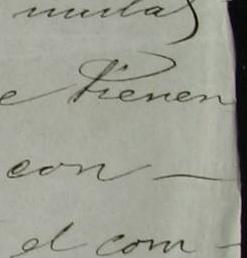 mulas
e tienen
con —
el com-